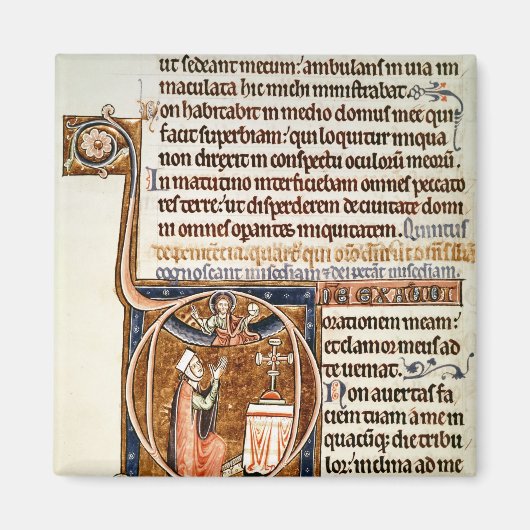 ut sedeant mecum: ambulans in uia im
maculata hic michi ministrabat.
Non habitabit in medio domus mee qui
facit superbiam: qui loquitur iniqua
non direxit in conspectu oculorum meorū.
In matutino interficiebam omnes peccato
res terre: ut disperderem de ciuitate domi
ni omnes operantes iniquitatem. Quintus
de penitencia.
NE EXAUDI
orationem meam:
et clamor meus ad
te ueniat.
Non auertas fa
ciem tuam a me in
quacūq; die tribu
lor: inclina ad me